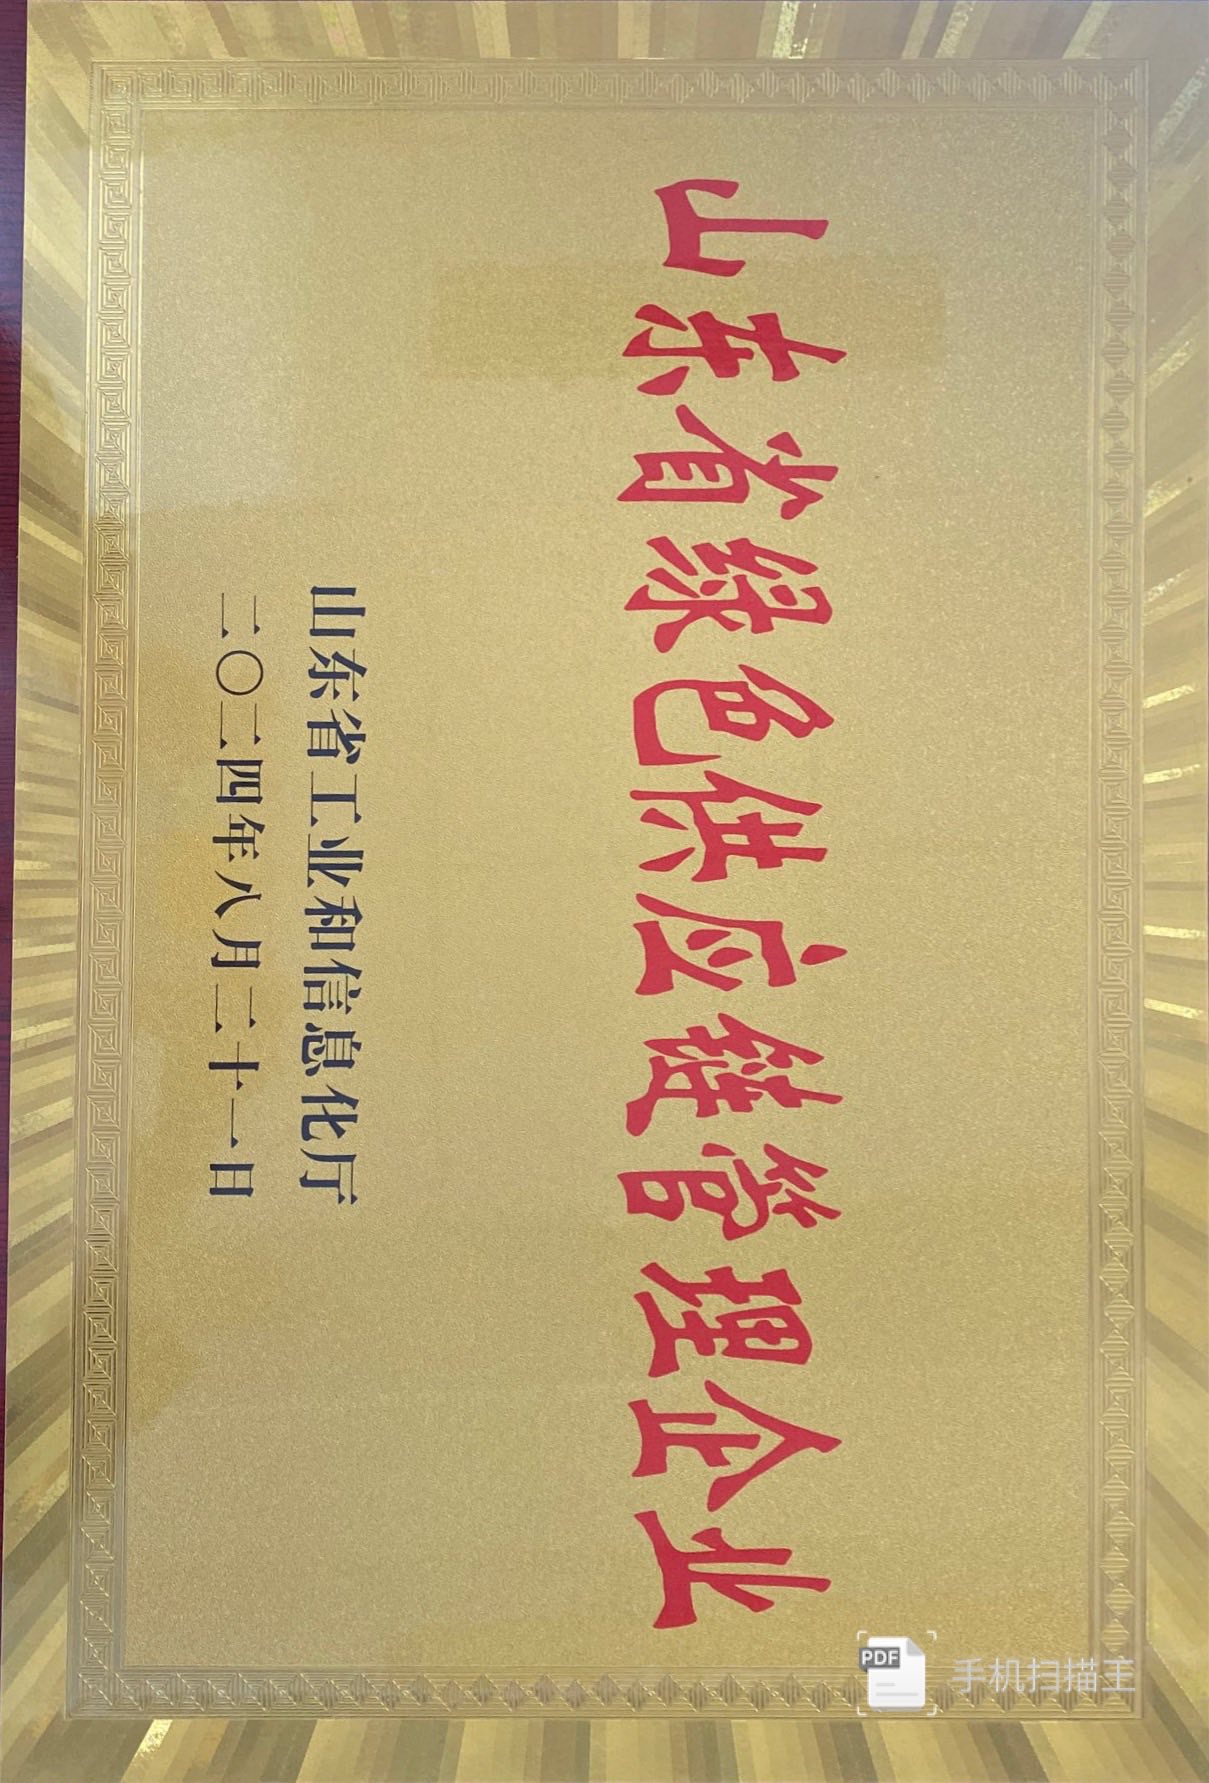 山东省绿色供应链管理企业
山东省工业和信息化厅
二〇二四年八月二十一日
PDF 手机扫描王